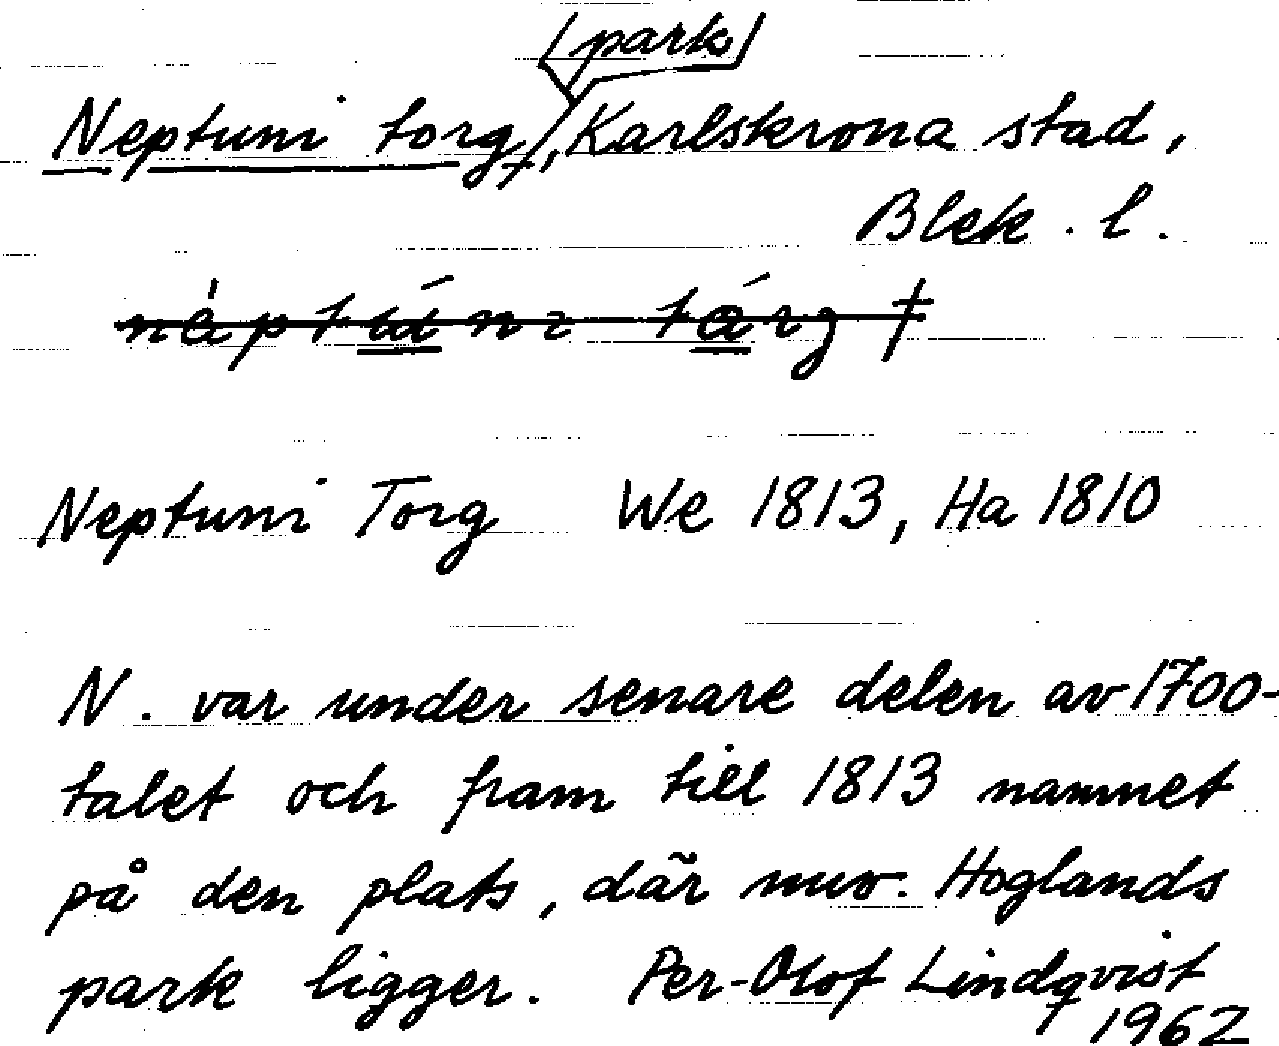 (park)
Neptuni torg/, Karlskrona stad,
Blek. l.
Neptuni Torg We 1813, Ha 1810
N. var under senare delen av 1700-
talet och fram till 1813 namnet
på den plats, där nuv. Hoglands
park ligger. Per-Olof Lindqvist
1962